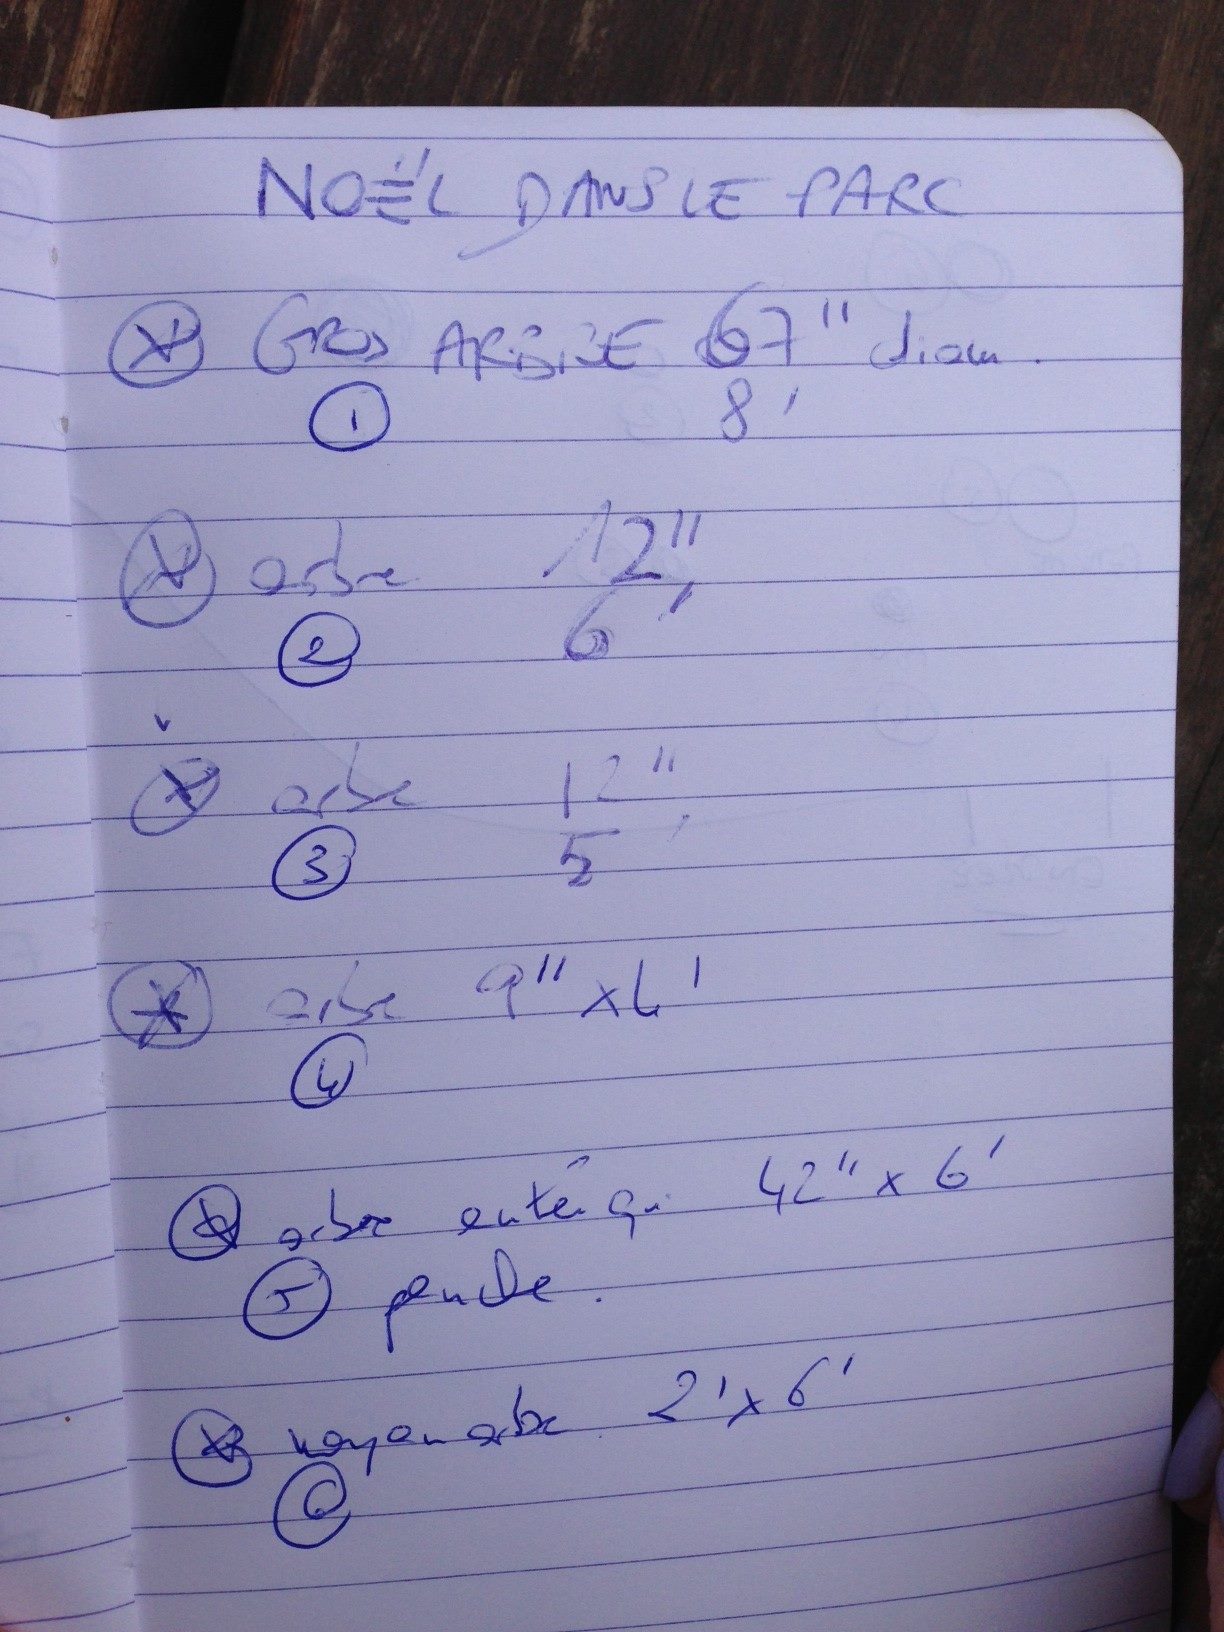 NOËL DANS LE PARC
GROS ARBRE 67" diam.
① 8'
arbre 12"
② 6'
arbre 12"
③ 5'
arbre 9" x 4'
④
arbre 42" x 6'
⑤ penche.
moyen arbre 2' x 6'
⑥